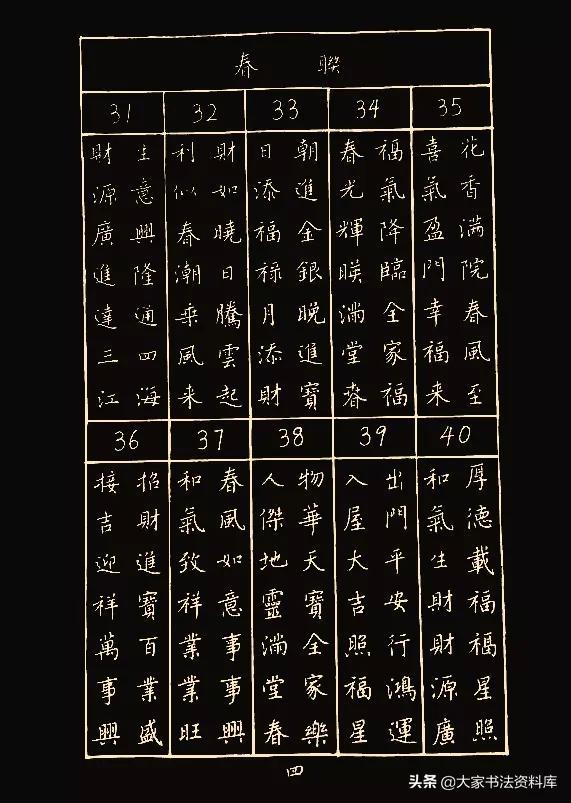 春聯
31
生意興隆通四海
財源廣進達三江
32
財如曉日騰雲起
利似春潮乘風来
33
朝進金銀晚進寶
日添福禄月添財
34
福氣降臨全家福
春光輝暎滿堂春
35
花香滿院春風至
喜氣盈門幸福来
36
招財進寶百業盛
接吉迎祥萬事興
37
春風如意事事興
和氣致祥業業旺
38
物華天寶全家樂
人傑地靈滿堂春
39
出門平安行鴻運
入屋大吉照福星
40
厚德載福福星照
和氣生財財源廣
四
头条 @大家书法资料库